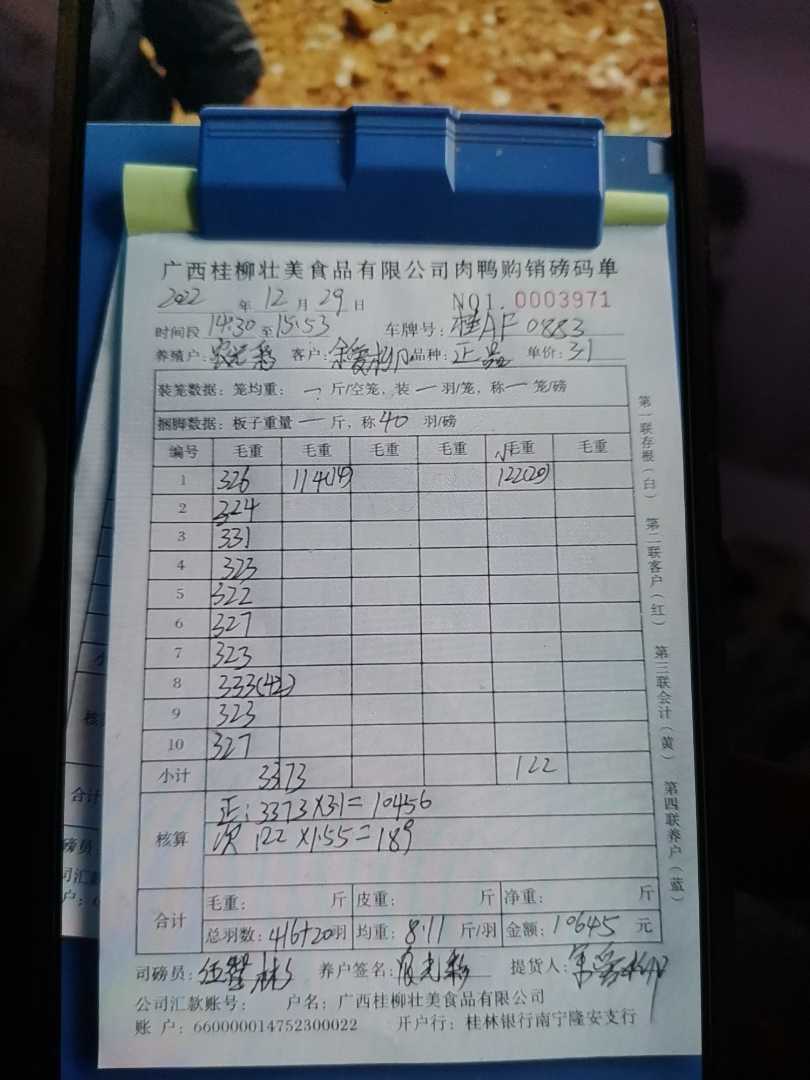 广西桂柳壮美食品有限公司肉鸭购销磅码单
2022 年 12 月 29 日 NO1. 0003971
时间段 14:30 至 15:53 车牌号: 桂AF0883
养殖户: 客户: 品种: 正品 单价: 3.1
装笼数据: 笼均重: 一 斤/空笼, 装 一 羽/笼, 称 一 笼/磅
捆脚数据: 板子重量 一 斤, 称 40 羽/磅
编号 毛重 毛重 毛重 毛重 毛重 毛重
1 326 114(14) 122(20)
2 324
3 331
4 323
5 322
6 327
7 323
8 333(42)
9 323
10 327
小计 3373 122
核算 正: 3373×3.1=10456
次 122×1.55=189
合计 毛重: 斤 皮重: 斤 净重: 斤
总羽数: 416+20羽 均重: 8.11 斤/羽 金额: 10645 元
司磅员: 养户签名: 提货人:
公司汇款账号: 户名: 广西桂柳壮美食品有限公司
账 户: 660000014752300022 开户行: 桂林银行南宁隆安支行
第一联存根(白) 第二联客户(红) 第三联会计(黄) 第四联养户(蓝)
核
合计
磅员
司汇款
户: